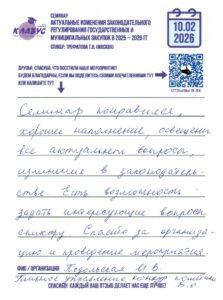 КЛАЗУС
СЕМИНАР
АКТУАЛЬНЫЕ ИЗМЕНЕНИЯ ЗАКОНОДАТЕЛЬНОГО
РЕГУЛИРОВАНИЯ ГОСУДАРСТВЕННЫХ И
МУНИЦИПАЛЬНЫХ ЗАКУПОК В 2025 – 2026 ГГ
СПИКЕР: ТРЕФИЛОВА Т.Н. (МОСКВА)
10.02
2026
ДРУЗЬЯ, СПАСИБО, ЧТО ПОСЕТИЛИ НАШЕ МЕРОПРИЯТИЕ!
БУДЕМ БЛАГОДАРНЫ, ЕСЛИ ВЫ ПОДЕЛИТЕСЬ СВОИМИ ВПЕЧАТЛЕНИЯМИ ТУТ
ИЛИ НАПИШИТЕ ТУТ
ОТЗЫВЫ В ВК
Семинар понравился,
хорошее наполнение, освещены
все актуальные вопросы,
изменение в законодатель-
стве. Есть возможность
задать интересующие вопросы
спикеру. Спасибо за организа-
цию и проведение мероприятия.
ФИО / ОРГАНИЗАЦИЯ Подольская
Главное управление
СПАСИБО! КАЖДЫЙ ВАШ ОТЗЫВ ДЕЛАЕТ НАС ЕЩЕ ЛУЧШЕ!